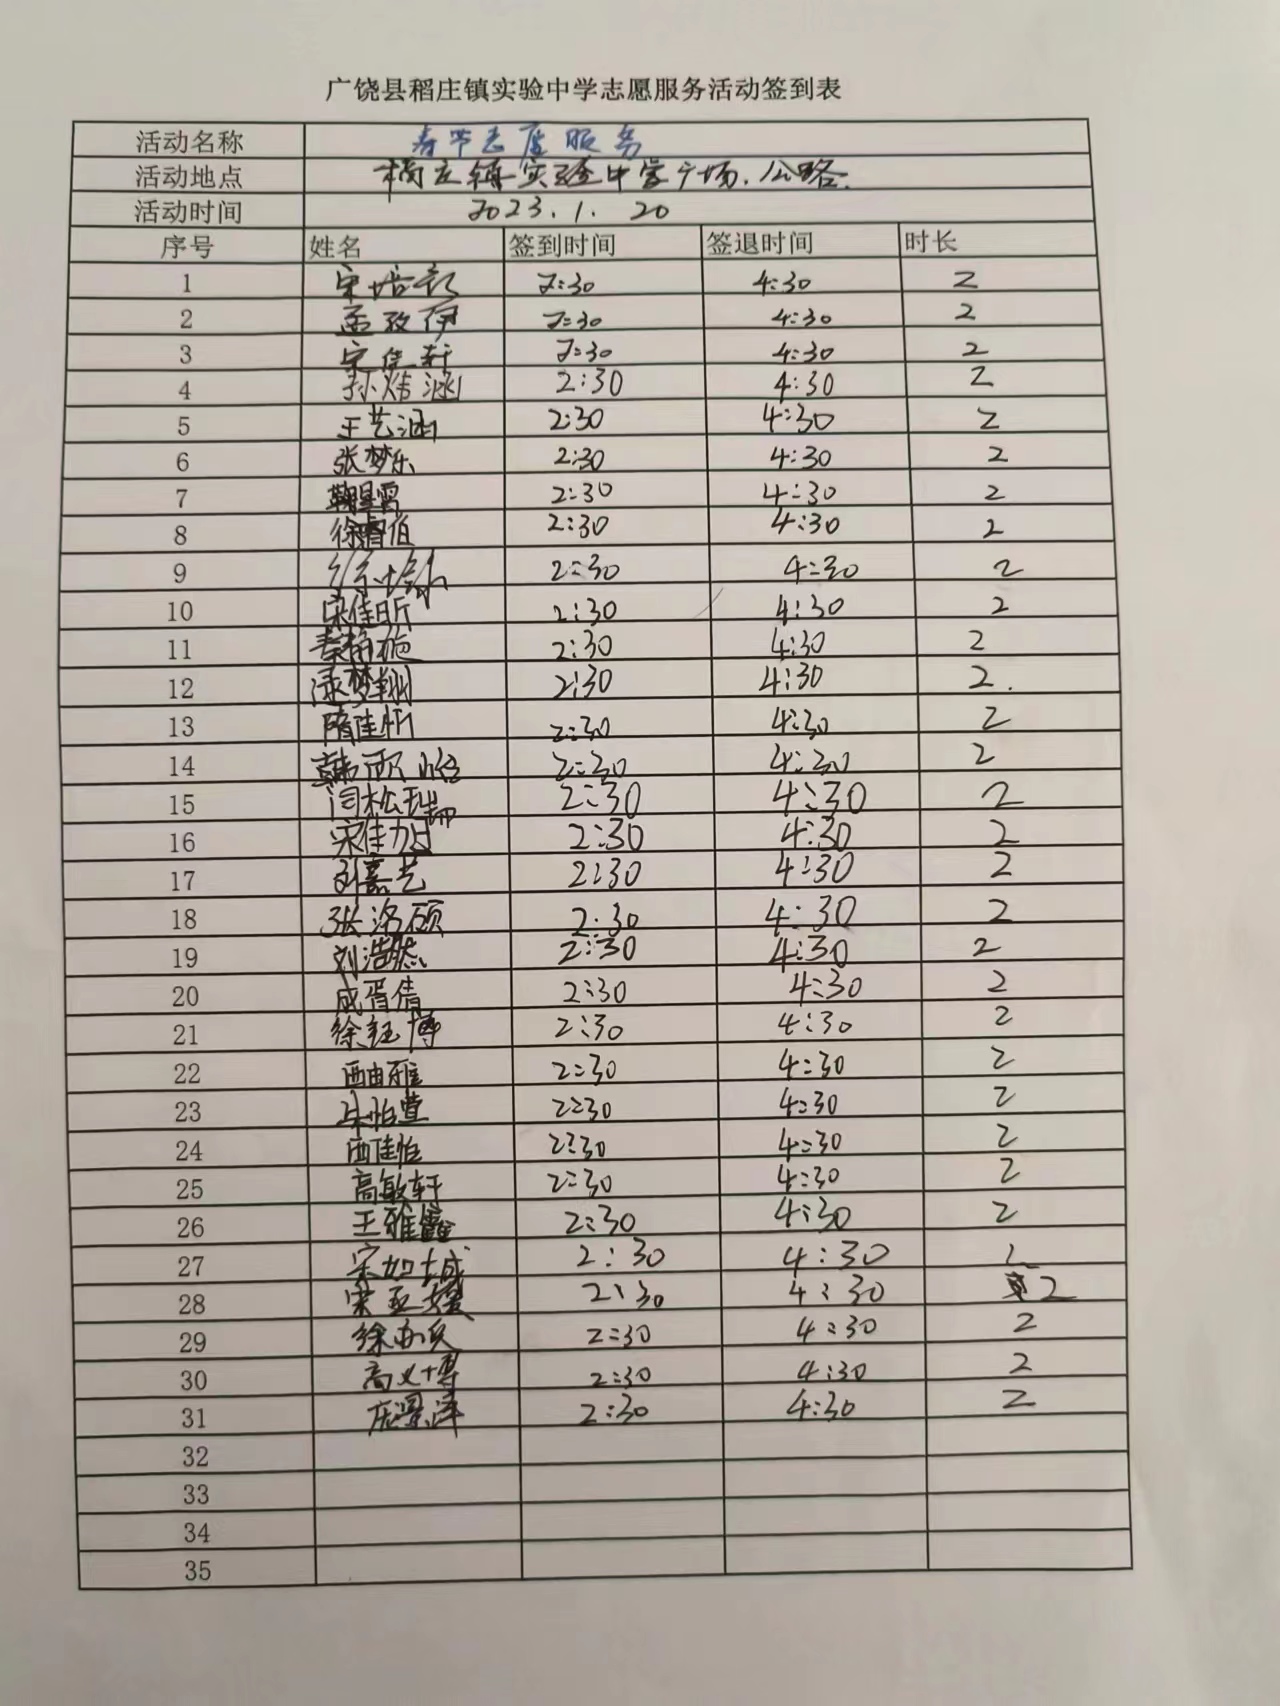 广饶县稻庄镇实验中学志愿服务活动签到表
活动名称 春节志愿服务
活动地点 稻庄镇实验中学广场.公路.
活动时间 2023.1.20
序号 姓名 签到时间 签退时间 时长
1 宋培 2:30 4:30 2
2 孟政伊 2:30 4:30 2
3 宋佳轩 2:30 4:30 2
4 孙炜涵 2:30 4:30 2
5 王艺涵 2:30 4:30 2
6 张梦乐 2:30 4:30 2
7 2:30 4:30 2
8 徐 2:30 4:30 2
9 2:30 4:30 2
10 宋佳昕 2:30 4:30 2
11 2:30 4:30 2
12 梦翔 2:30 4:30 2.
13 隋佳忻 2:30 4:30 2
14 韩 怡 2:30 4:30 2
15 闫松 2:30 4:30 2
16 宋佳 2:30 4:30 2
17 刘嘉艺 2:30 4:30 2
18 张洛硕 2:30 4:30 2
19 刘浩然 2:30 4:30 2
20 成胥倩 2:30 4:30 2
21 徐钰博 2:30 4:30 2
22 雅 2:30 4:30 2
23 怡萱 2:30 4:30 2
24 西佳怡 2:30 4:30 2
25 高敏轩 2:30 4:30 2
26 王雅鑫 2:30 4:30 2
27 宋如城 2:30 4:30 2
28 宋亚媛 2:30 4:30 2
29 徐 2:30 4:30 2
30 高义博 2:30 4:30 2
31 泽 2:30 4:30 2
32
33
34
35